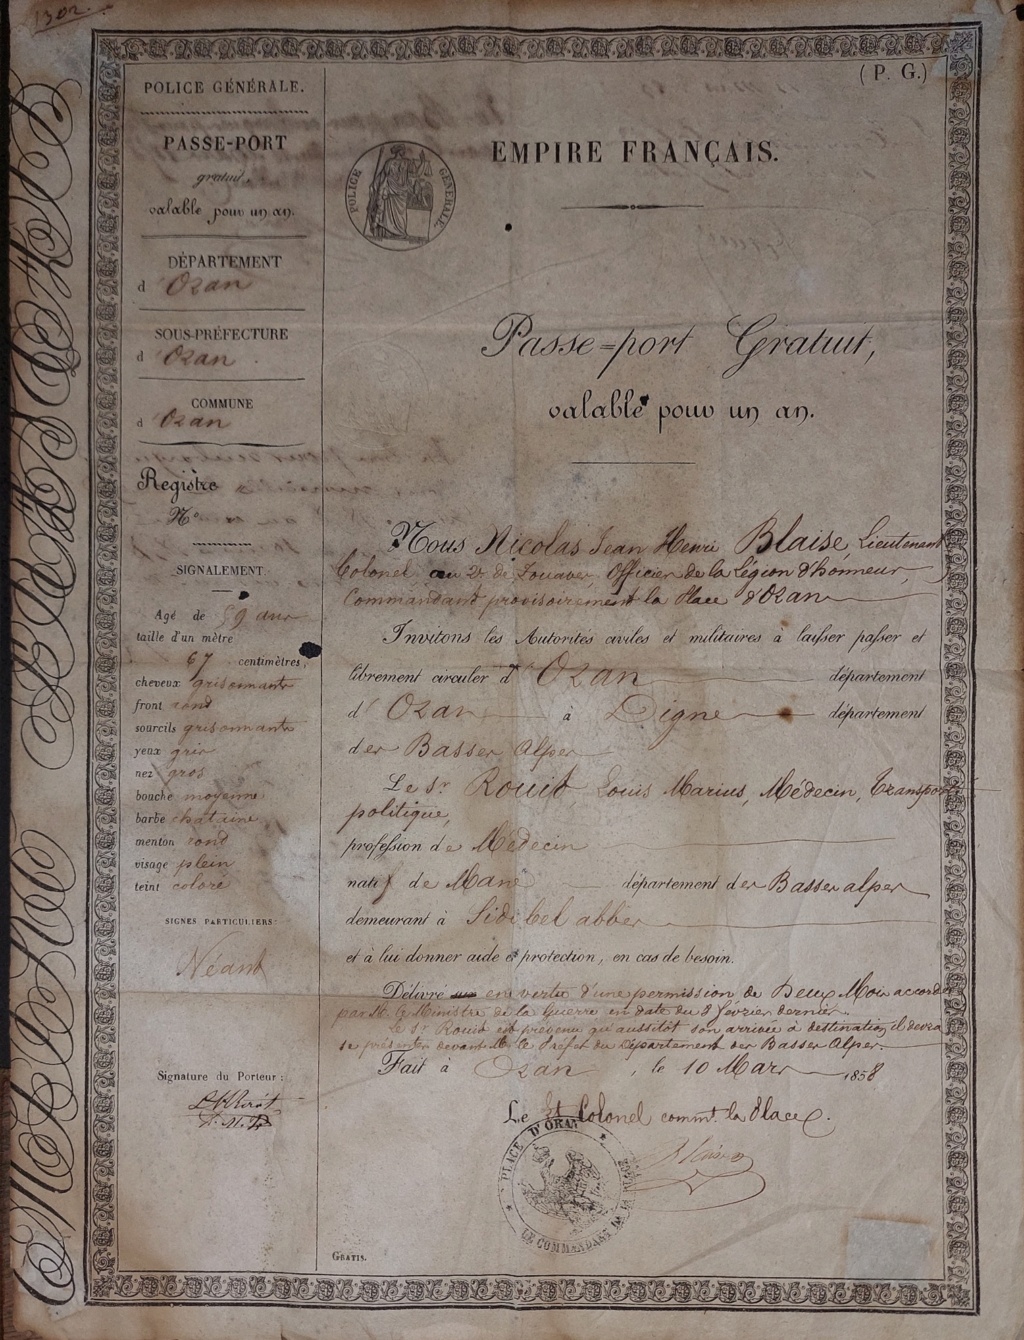 1302.
(P. G.)
POLICE GÉNÉRALE.
PASSE-PORT
gratuit,
valable pour un an.
DÉPARTEMENT
d Oran
SOUS-PRÉFECTURE
d Oran
COMMUNE
d Oran
Registre
N°
SIGNALEMENT.
Agé de 59 ans
taille d'un mètre
67 centimètres,
cheveux grisonnants
front rond
sourcils grisonnants
yeux gris
nez gros
bouche moyenne
barbe chataine
menton rond
visage plein
teint coloré
SIGNES PARTICULIERS:
Néant
Signature du Porteur:
POLICE GÉNÉRALE.
EMPIRE FRANÇAIS.
Passe=port Gratuit,
valable pour un an.
Nous Nicolas Jean Henri Blaise, Lieutenant
Colonel au 2e de Zouaves, Officier de la Légion d'honneur,
Commandant provisoirement la Place d'Oran
Invitons les Autorités civiles et militaires à laisser passer et
librement circuler d'Oran département
d'Oran à Digne département
des Basses Alpes
Le Sr Rouit, Louis Marius, Médecin, Transporté
politique,
profession de Médecin
natif de Mane département des Basses alpes
demeurant à Sidi bel abbes
et à lui donner aide et protection, en cas de besoin.
Délivré en vertu d'une permission de Deux Mois accordée
par M. le Ministre de la Guerre en date du 8 février dernier.
Le Sr Rouit est prévenu qu'aussitôt son arrivée à destination, il devra
se présenter devant M. le Préfet du Département des Basses Alpes.
Fait à Oran, le 10 Mars 1858
Le Lt Colonel commt. la Place.
PLACE D'ORAN
LE COMMANDANT DE LA PLACE
GRATIS.